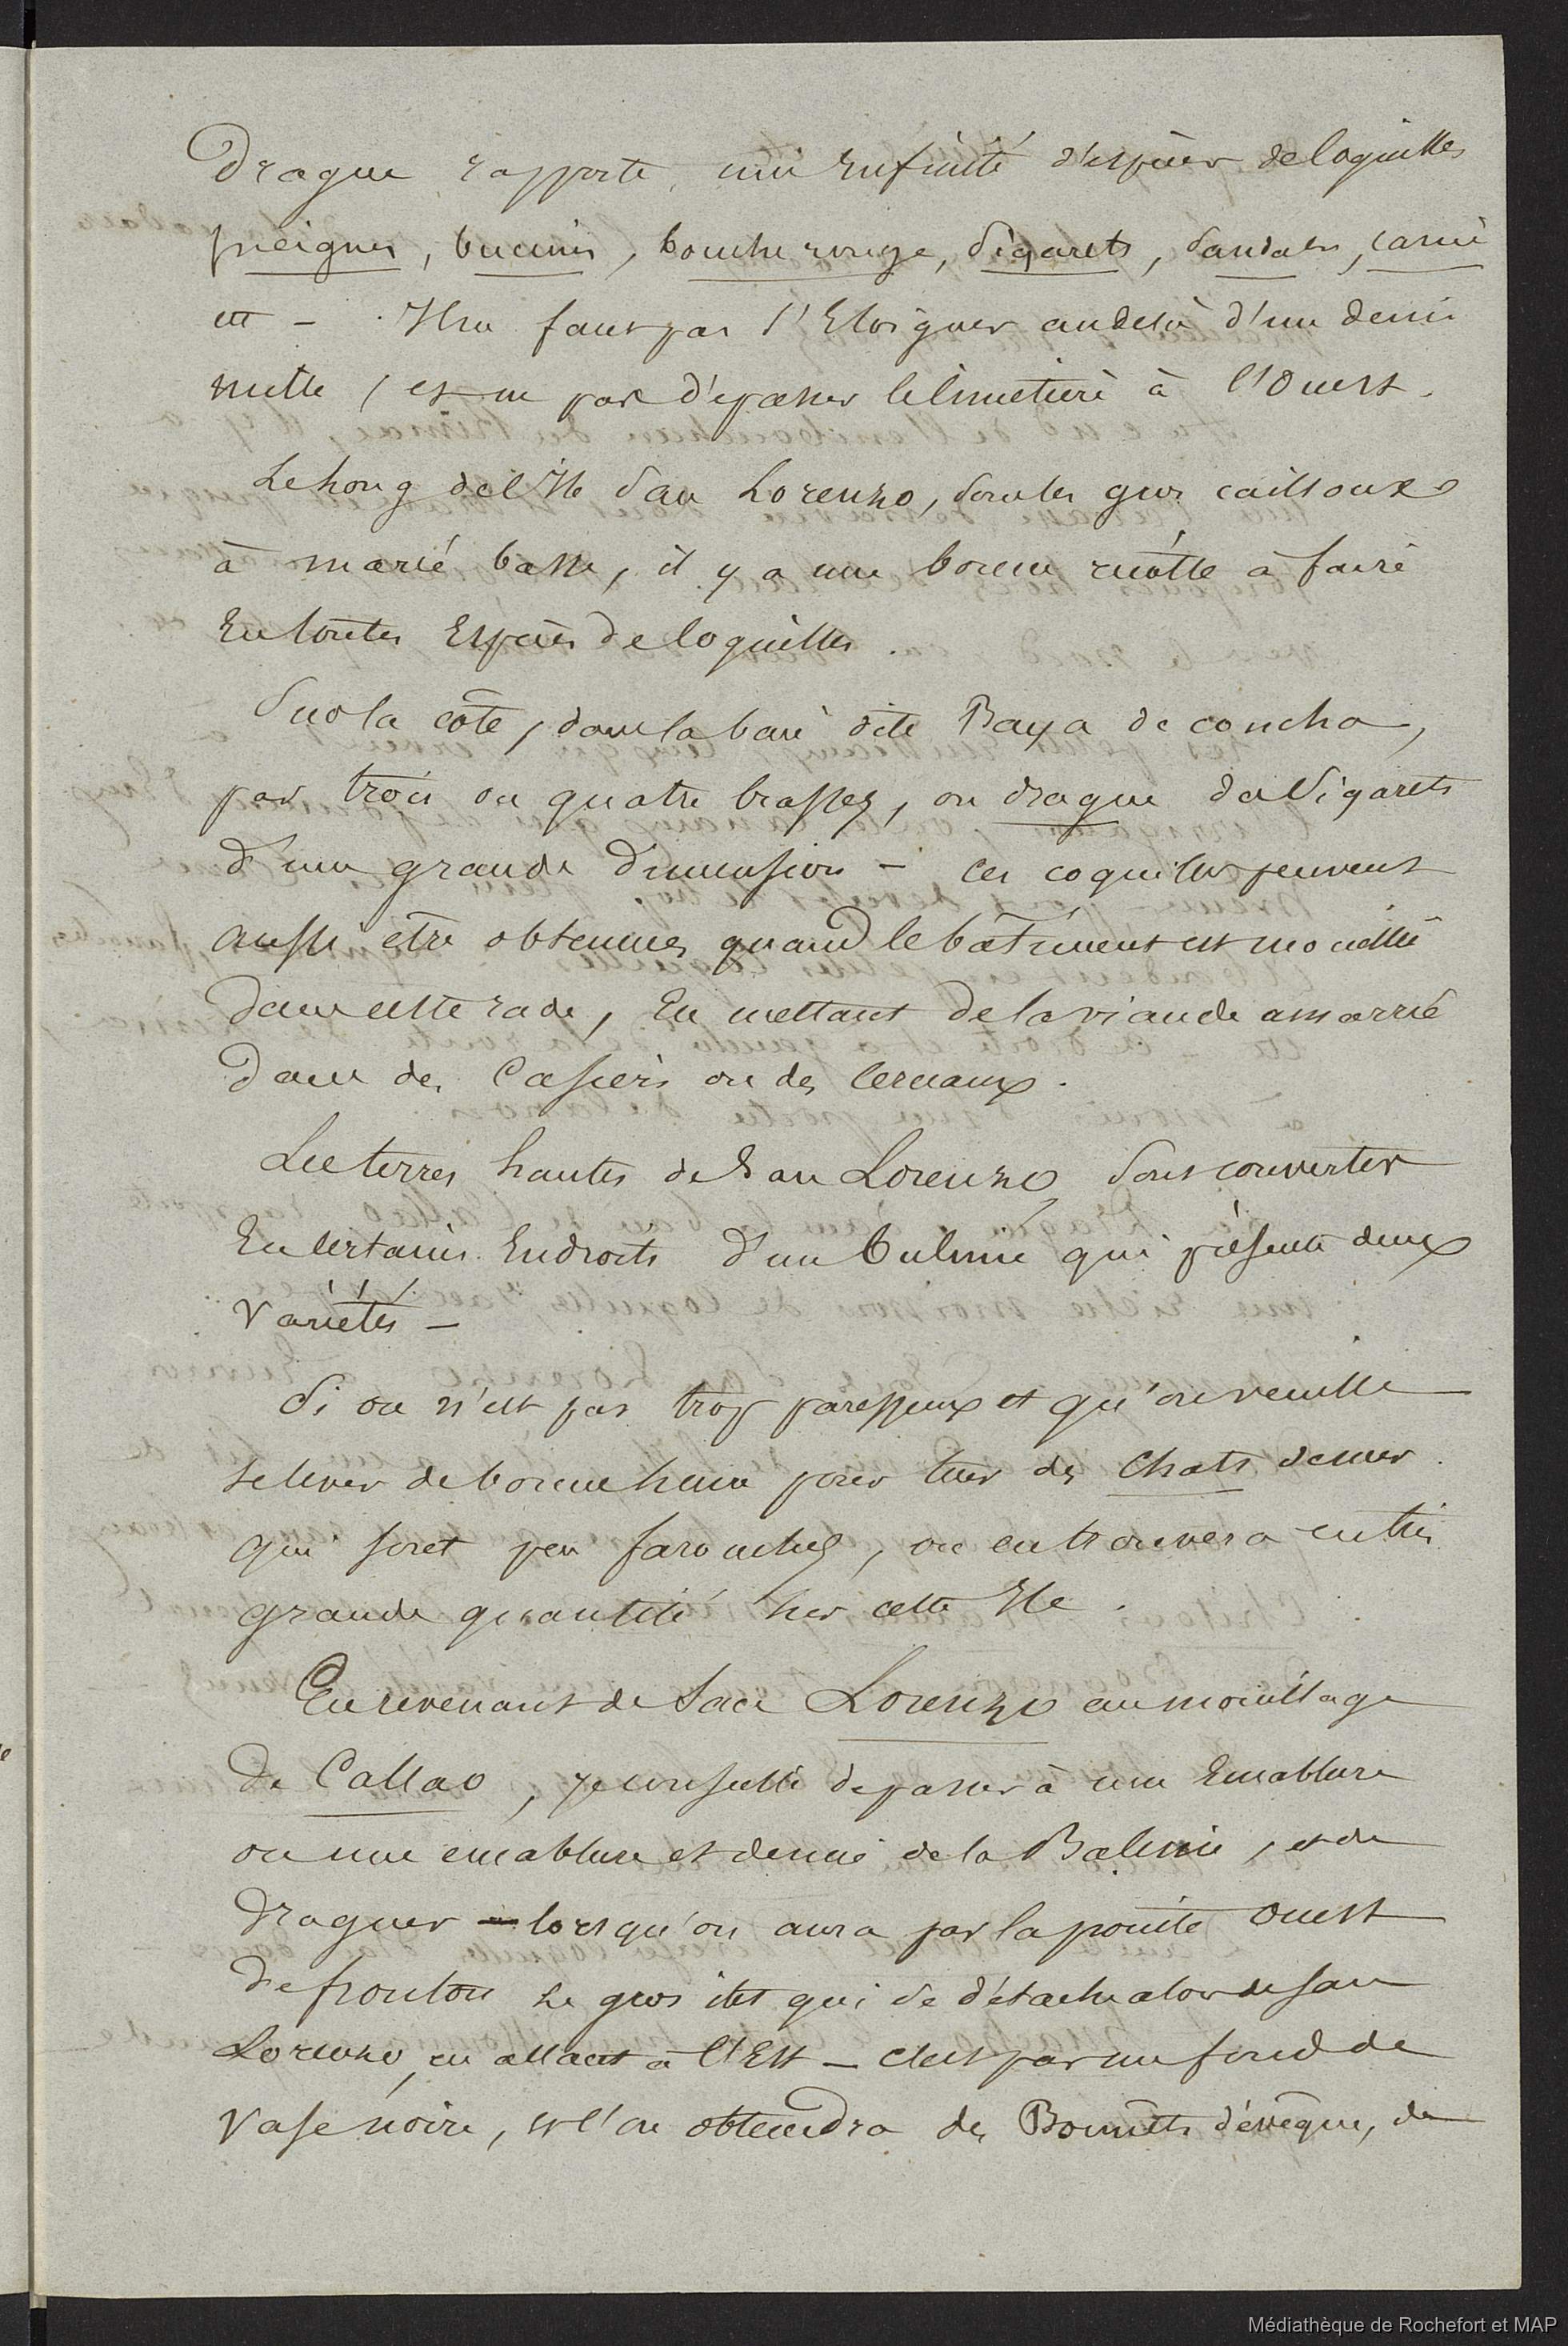 Drague rapporte, une Infinité d'espèces de Coquilles
peignes, buccins, bouche rouge, Sigarets, Dandales, came
ett - Il ne faut pas s'Eloigner au delà d'un demi
mille, et ne pas dépasser le Cimetière à l'Ouest.
Le long de l'Ile San Lorenzo, sous les gros cailloux
à marée basse, il y a une bonne récolte à faire
En toutes Espèces de Coquilles.
Sur la côte, dans la baie dite Baya de concha,
par trois ou quatre brasses, on drague des Sigarets
d'une grande dimension - Ces coquilles peuvent
aussi être obtenues quand le bâtiment est mouillé
dans cette rade, En mettant de la viande amarrée
dans des Casiers ou des Cerceaux.
Les terres hautes de San Lorenzo, sont couvertes
En Certains Endroits d'un bulime qui présente deux
variétés -
Si on n'est pas trop paresseux et qu'on veuille
se lever de bonne heure pour tuer des Chats de mer
qui sont peu farouches, on en trouvera en très
grande quantité sur cette Ile.
En revenant de San Lorenzo au mouillage
de Callao, je conseille de passer à une Encablure
ou une encablure et demie de la Baleine, et de
Draguer - lorsqu'on aura par la pointe Ouest
de fronton le gros ilet qui se détache alors de San
Lorenzo, en allant à l'Est - C'est par un fond de
vase noire, et l'on obtiendra des Bonnets d'évêque, de
Médiathèque de Rochefort et MAP